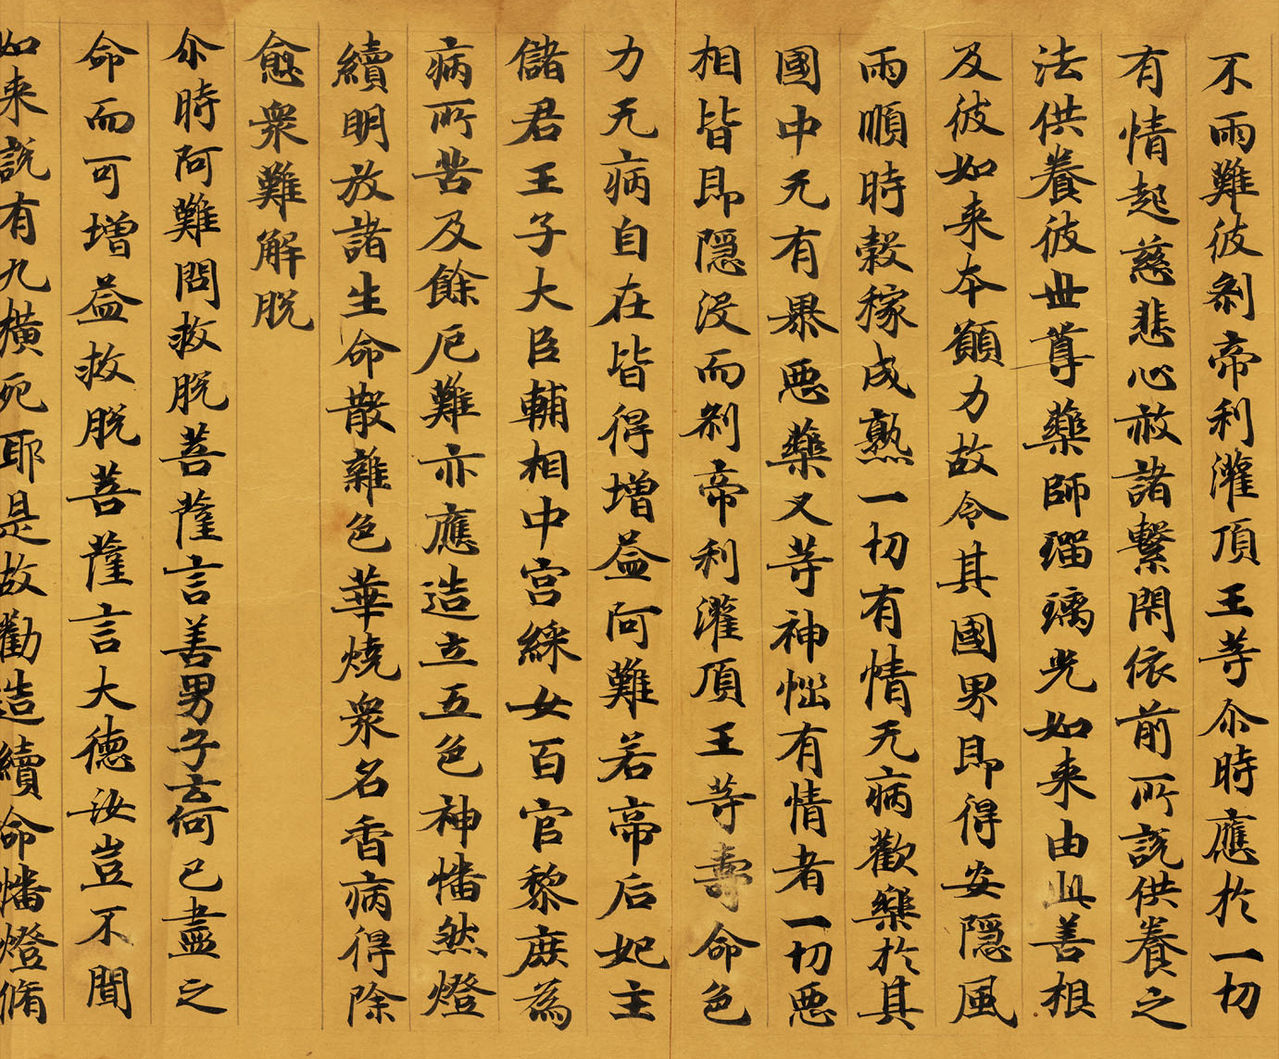 不雨難彼剎帝利灌頂王等尒時應於一切
有情起慈悲心赦諸繫閇依前所説供養之
法供養彼世尊藥師瑠璃光如来由此善根
及彼如来本願力故令其國界即得安隱風
雨順時穀稼成熟一切有情无病歡樂於其
國中无有暴悪藥叉等神惱有情者一切悪
相皆即隱沒而剎帝利灌頂王等壽命色
力无病自在皆得增益阿難若帝后妃主
儲君王子大臣輔相中宮綵女百官黎庶為
病所苦及餘厄難亦應造立五色神幡然燈
續明放諸生命散雜色華燒衆名香病得除
愈衆難解脫
尒時阿難問救脫菩薩言善男子云何已盡之
命而可增益救脫菩薩言大德汝豈不聞
如来説有九橫死耶是故勸造續命幡燈脩